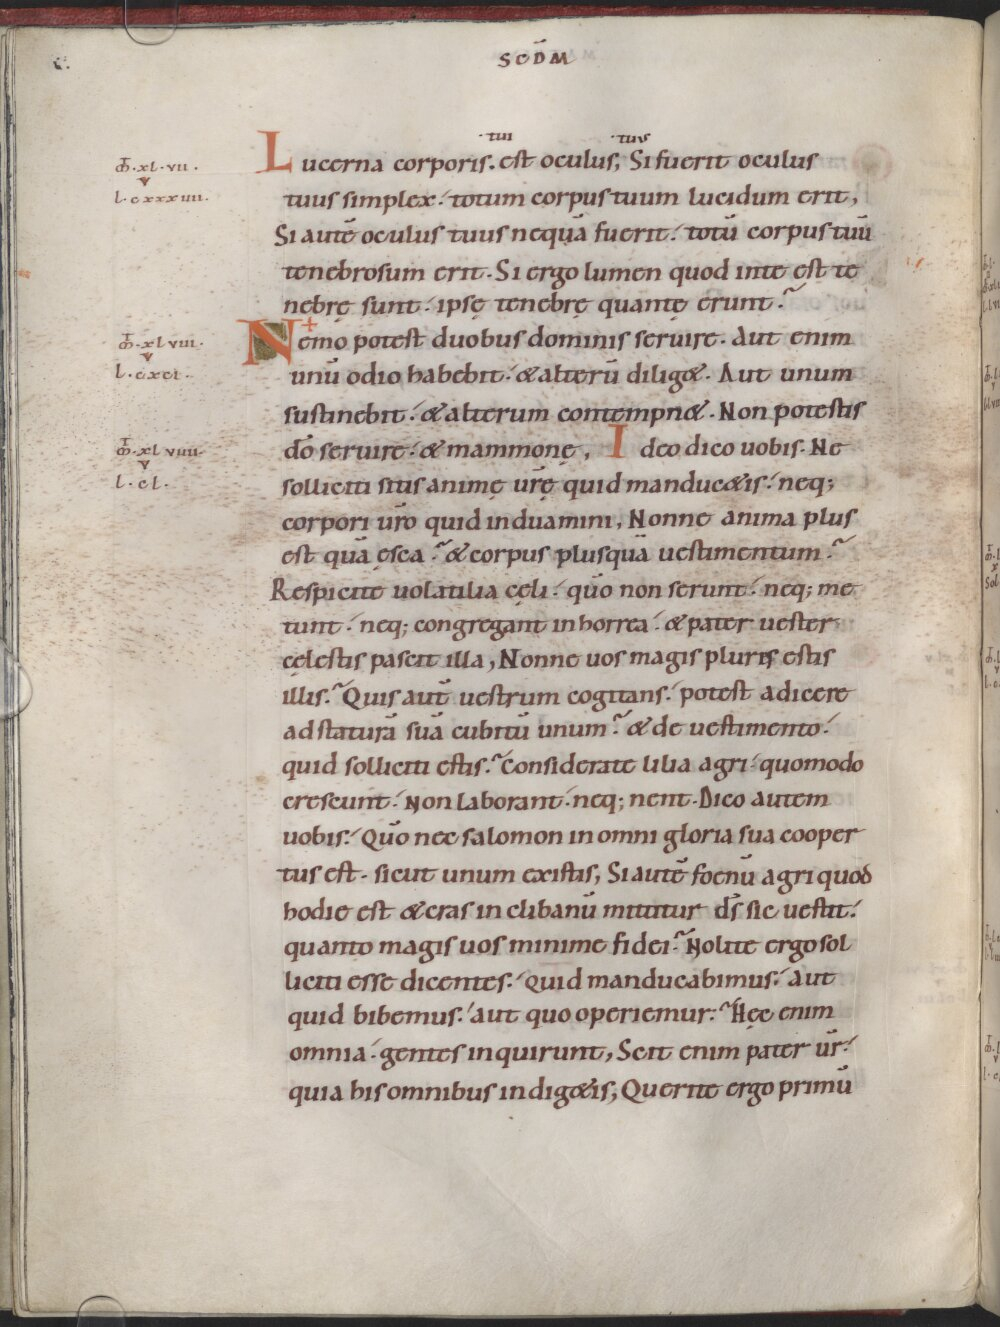 SCDM̄
·tui ·tuus
Lucerna corporis. est oculus; Si fuerit oculus
m̅·xl·vii·
v
l·cxxxiiii·
tuus simplex· totum corpus tuum lucidum erit,
Si autē oculus tuus nequā fuerit· totū corpus tuū
tenebrosum erit· Si ergo lumen quod inte est te
nebrę sunt· ipsę tenebrę quantę erunt·
Nemo potest duobus dominis seruire· Aut enim
m̅·xlviii·
v
l·cxci·
unū odio habebit· & alterū dilig&· Aut unum
sustinebit· & alterum contempn&· Non potestis
dō seruire· & mammonę, Ideo dico uobis· Ne
m̅·xlviiii·
v
l·cl·
solliciti sitis animę ur̄ę quid manduc&is· neq;
corpori ur̄o quid induamini, Nonne anima plus
est quā esca· & corpus plusquā uestimentum·
Respicite uolatilia cęli· quō non serunt· neq; me
tunt· neq; congregant in horrea· & pater uester
cęlestis pascit illa, Nonne uos magis pluris estis
illis· Quis aut̄ uestrum cogitans· potest adicere
ad staturā suā cubitū unum· & de uestimento·
quid solliciti estis· Considerate lilia agri· quomodo
crescunt· Non laborant· neq; nent· Dico autem
uobis· Quō nec salomon in omni gloria sua cooper
tus est· sicut unum ex istis; Si autē foenū agri quod
hodie est & cras in clibanū mittitur dš sic uestit·
quanto magis uos minime fidei· Nolite ergo sol
liciti esse dicentes· Quid manducabimus· aut
quid bibemus· aut quo operiemur· Hęc enim
omnia· gentes inquirunt, Scit enim pater ur̄·
quia his omnibus indig&is; Querite ergo primū